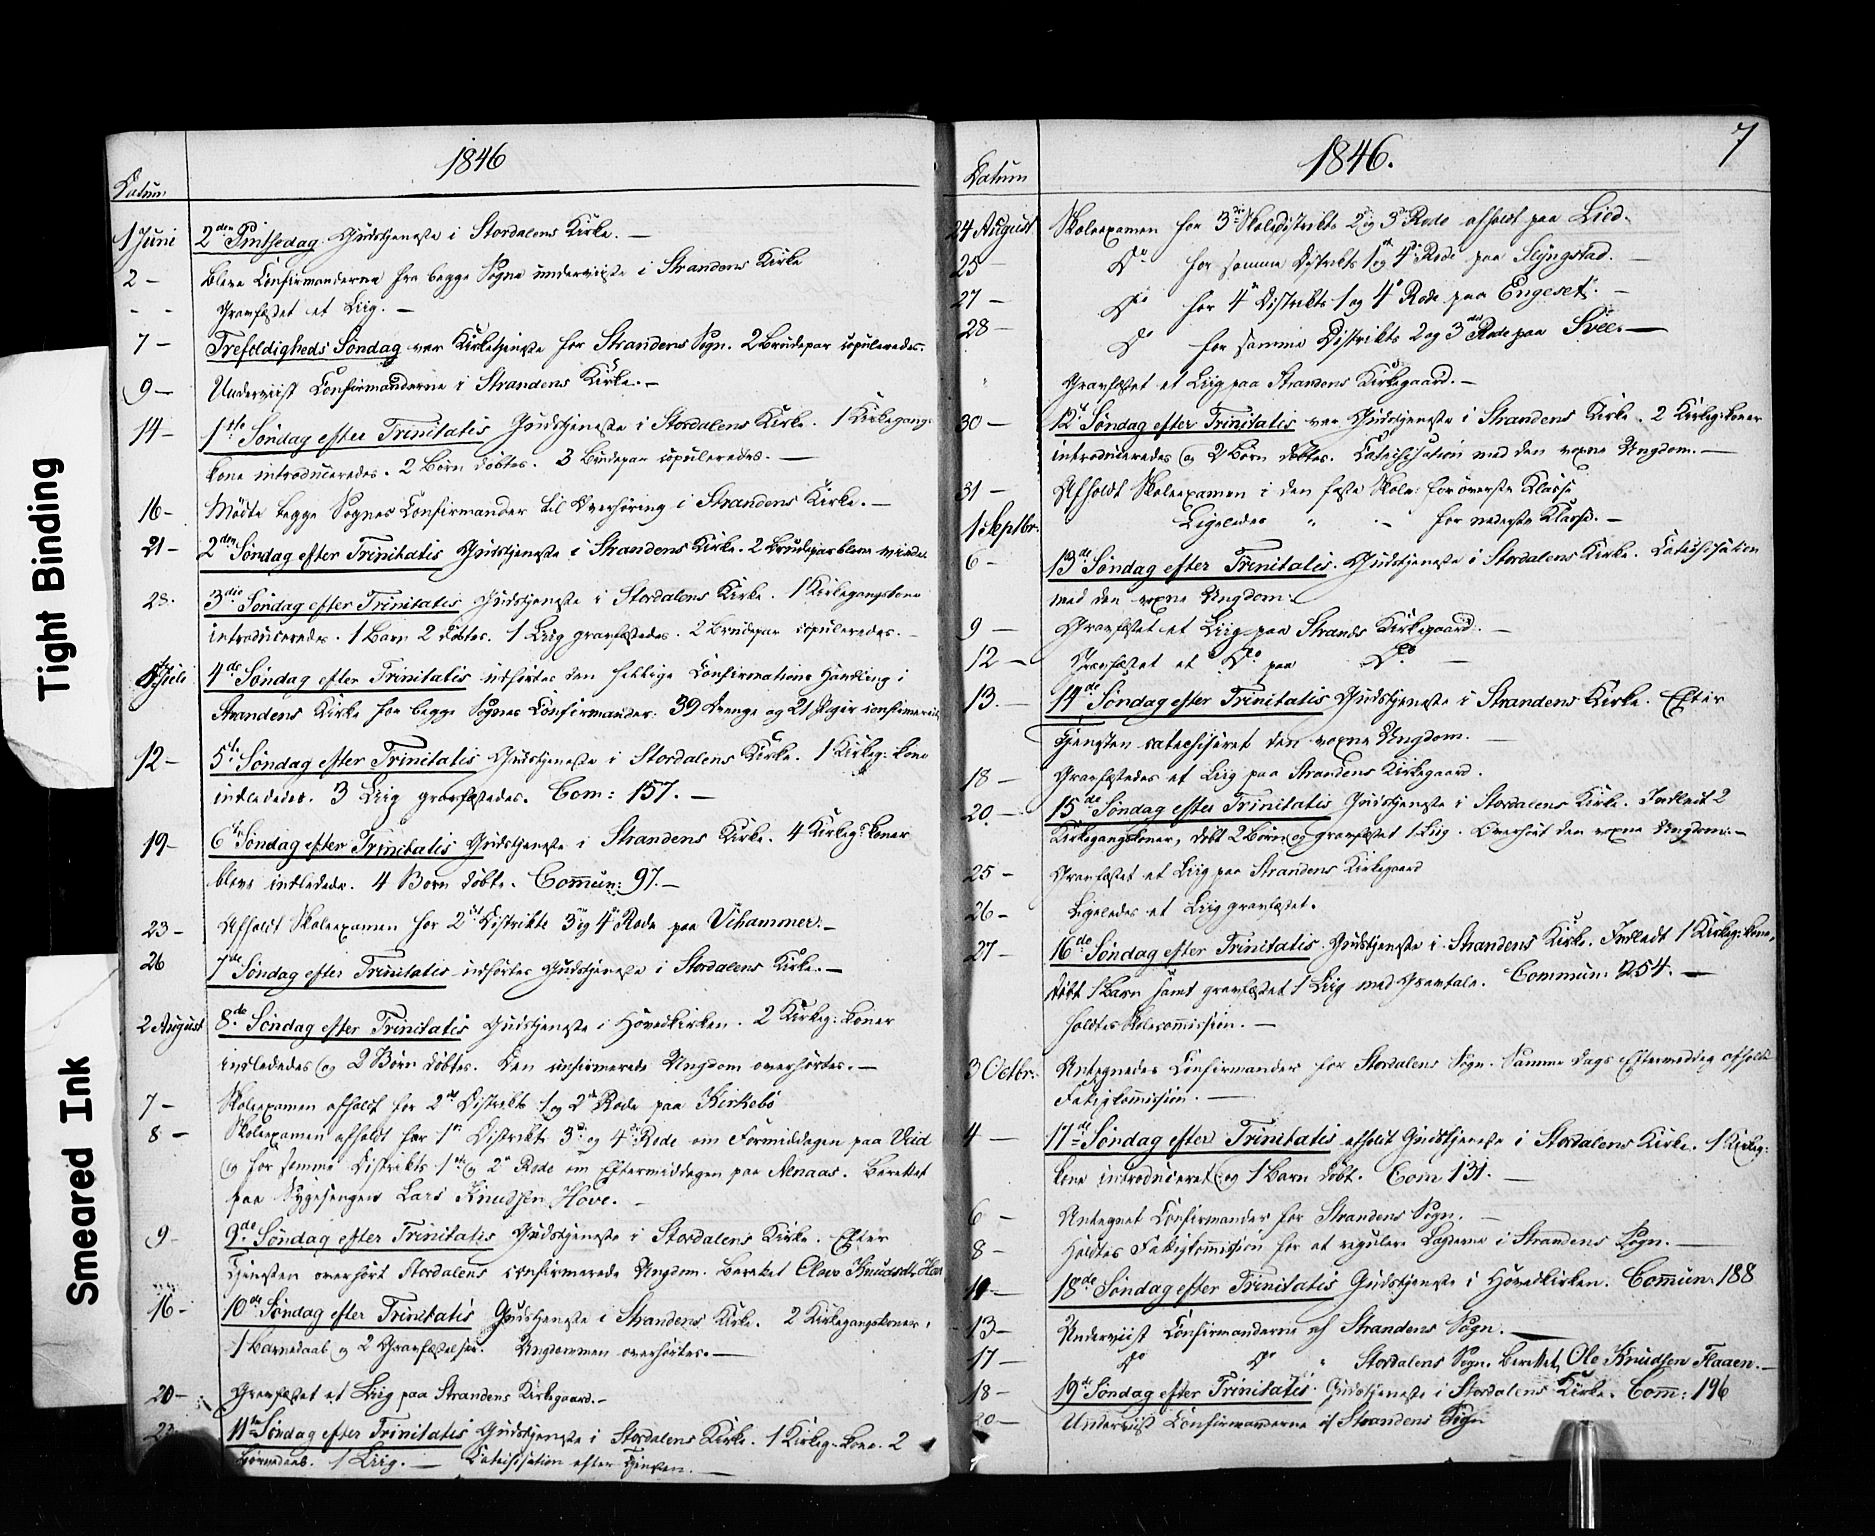 Tight Binding
Smeared Ink
1846
Datum
1 Juni 2den Pintsedag Gudstjeneste i Stordalens Kirke. —
2 — Bleve Confirmanderne fra begge Sogne underviiste i Strandens Kirke
- - Gravfæstet et Liig. —
7 — Trefoldigheds Søndag var Kirketjeneste for Strandens Sogn. 2 Brudepar copuleredes.
9 — Underviist Confirmanderne i Strandens Kirke. —
14 — 1ste Søndag efter Trinitatis Gudstjeneste i Stordalens Kirke. 1 Kirkegangs-
kone introduceredes. 2 Børn døbtes. 3 Brudepar copuleredes. —
16 — Mødte begge Sognes Confirmander til Overhøring i Strandens Kirke. —
21 — 2den Søndag efter Trinitatis Gudstjeneste i Strandens Kirke. 2 Brudepar bleve viede.
28. 3die Søndag efter Trinitatis Gudstjeneste i Stordalens Kirke. 1 Kirkegangskone
introduceredes. 1 Barn døbtes. 1 Liig gravfæstedes. 2 Brudepar copuleredes. —
5 Juli 4de Søndag efter Trinitatis udførtes den hellige Confirmations Handling i
Strandens Kirke for begge Sognes Confirmander: 39 Drenge og 21 Piger confirmered
12 — 5te Søndag efter Trinitatis Gudstjeneste i Stordalens Kirke. 1 Kirkeg: kone
indlededes. 3 Liig gravfæstedes. Com: 157. —
19 — 6te Søndag efter Trinitatis Gudstjeneste i Strandens Kirke. 4 Kirkeg: koner
bleve indledede. 4 Børn døbte. Commun: 97. —
23 — Afholdt Skoleexamen for 2det Distrikts 3die og 4de Rode paa Vihammer. —
26 7de Søndag efter Trinitatis udførtes Gudstjeneste i Stordalens Kirke. —
2 August 8de Søndag efter Trinitatis Gudstjeneste i Hovedkirken. 2 Kirkeg: koner
indlededes og 2 Børn døbtes. Den confirmerede Ungdom overhørtes. —
7 — Skoleexamen afholdt for 2det Distrikts 1 og 2den Rode paa Kirkebø
8 — Skoleexamen afholdt for 1ste Distrikts 3die og 4de Rode om Formiddagen paa Viid
og for samme Distrikts 1ste og 2den Rode om Eftermiddagen paa Alnaas. Berettet
paa Sygesengen Lars Knudsen Hove. —
9 — 9de Søndag efter Trinitatis Gudstjeneste i Stordalens Kirke. Efter
Tjenesten overhørt Stordalens confirmerede Ungdom. Berettet
16 — 10de Søndag efter Trinitatis Gudstjeneste i Strandens Kirke. 2 Kirkegangskoner,
1 Barnedaab og 2 Gravfæstelser. Ungdommen overhørtes. —
20 — Gravfæstet et Liig paa Strandens Kirkegaard. —
23 11te Søndag efter Trinitatis Gudstjeneste i Stordalens Kirke. 1 Kirkeg: kone. 2
Barnedaab. 1 Liig. — Catechisation efter Tjenesten. —
7
1846.
Datum
24 August Skoleexamen for 3die Skoledistrikts 2 og 3die Rode afholdt paa Lied.
25 — Do for samme Distrikts 1 og 4de Rode paa Slyngstad. —
27 — Do for 4de Distrikts 1 og 4de Rode paa Engeset. —
28 — Do for samme Distrikts 2 og 3die Rode paa Svee. —
Gravfæstet et Liig paa Strandens Kirkegaard. —
30 — 12te Søndag efter Trinitatis var Gudstjeneste i Strandens Kirke. 2 Kirkeg: koner
introduceredes og 2 Børn døbtes. Catechisation med den voxne Ungdom. —
31 — Afholdt Skoleexamen i den faste Skole: for øverste Klasse
1 Septbr: Ligeledes " - for nederste Klasse. —
6 — 13de Søndag efter Trinitatis. Gudstjeneste i Stordalens Kirke. Catechisation
med den voxne Ungdom.
9 — Gravfæstet et Liig paa Strands Kirkegaard. —
12 — Gravfæstet et Do paa Do —
13. — 14de Søndag efter Trinitatis Gudstjeneste i Strandens Kirke. Efter
Tjenesten catechiseret den voxne Ungdom. —
18 — Gravfæstedes et Liig paa Strandens Kirkegaard.
20. — 15de Søndag efter Trinitatis Gudstjeneste i Stordalens Kirke. Indledt 2
Kirkegangskoner, døbt 2 Børn og gravfæstet 1 Liig. Overhørt den voxne Ungdom. —
25 — Gravfæstet et Liig paa Strandens Kirkegaard
26 — Ligeledes et Liig gravfæstet.
27 — 16de Søndag efter Trinitatis. Gudstjeneste i Strandens Kirke. Indledt 1 Kirkeg: kone,
døbt 1 Barn samt gravfæstet 1 Liig med Gravtale. Commun: 254. —
Holdtes Skolecommission. —
3 Octbr: Antegnedes Confirmander for Stordalens Sogn. Samme Dags Eftermiddag afholdt
Fattigkommission. —
4 — 17de Søndag efter Trinitatis afholdt Gudstjeneste i Stordalens Kirke. 1 Kirkeg:
kone introduceret og 1 Barn døbt. Com 131. —
6 — Antegnet Confirmander for Strandens Sogn. —
8 — Holdtes Fattigkommission for at regulere Lægderne i Strandens Sogn. —
11 — 18de Søndag efter Trinitatis Gudstjeneste i Hovedkirken. Commun: 188
13 — Underviist Confirmanderne af Strandens Sogn. —
17 — Do Do " Stordalens Sogn. Berettet Ole Knudsen Flaaen. —
18 — 19de Søndag efter Trinitatis. Gudstjeneste i Stordalens Kirke. Com: 196
20 — Underviist Confirmanderne af Strandens Sogn